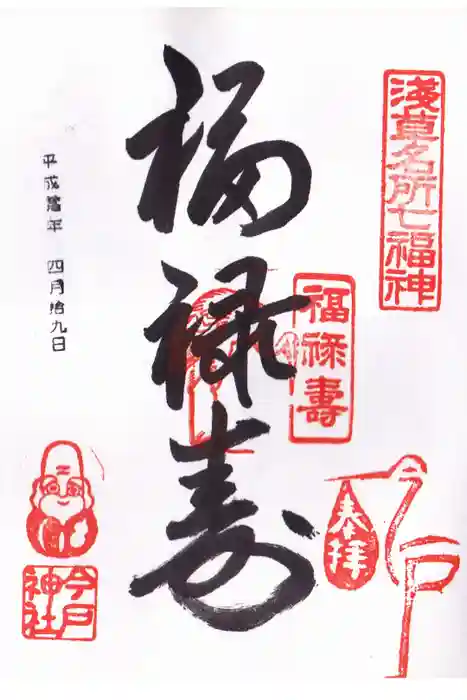 浅草名所七福神
福禄寿
奉拝
今戸
福禄壽
平成 年 四月拾九日
今戸神社